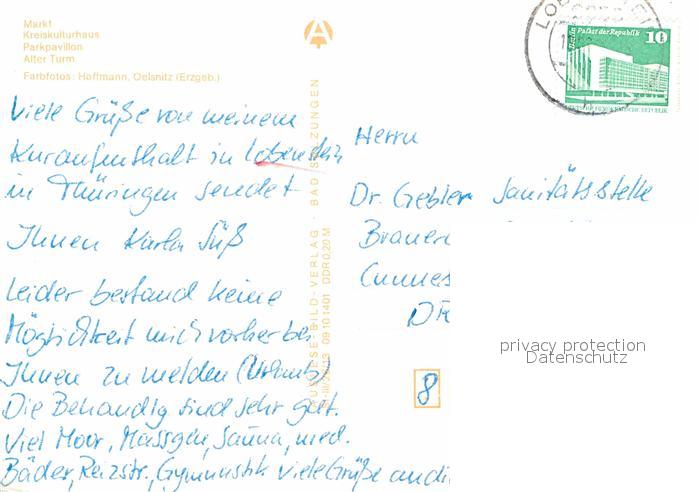 Markt
Kreiskulturhaus
Parkpavillon
Alter Turm
Farbfotos: Hoffmann, Oelsnitz (Erzgeb.)
Viele Grüße von meinem
Kuraufenthalt in Lobenstein
in Thüringen sendet
Ihnen Karla Süß
Leider bestand keine
Möglichkeit mich vorher bei
Ihnen zu melden (Urlaub)
Die Behandlg sind sehr gut.
Viel Moor, Massgen, Sauna, med.
Bäder, Reizstr., Gymnastik viele Grüße an di
BILD-VERLAG · BAD SALZUNGEN
09101401 DDR 0,20 M
LOBENSTEIN
10
Palast der Republik
Herrn
Dr. Gebler Sanitätsstelle
Brauere
Cunnes
8
privacy protection
Datenschutz